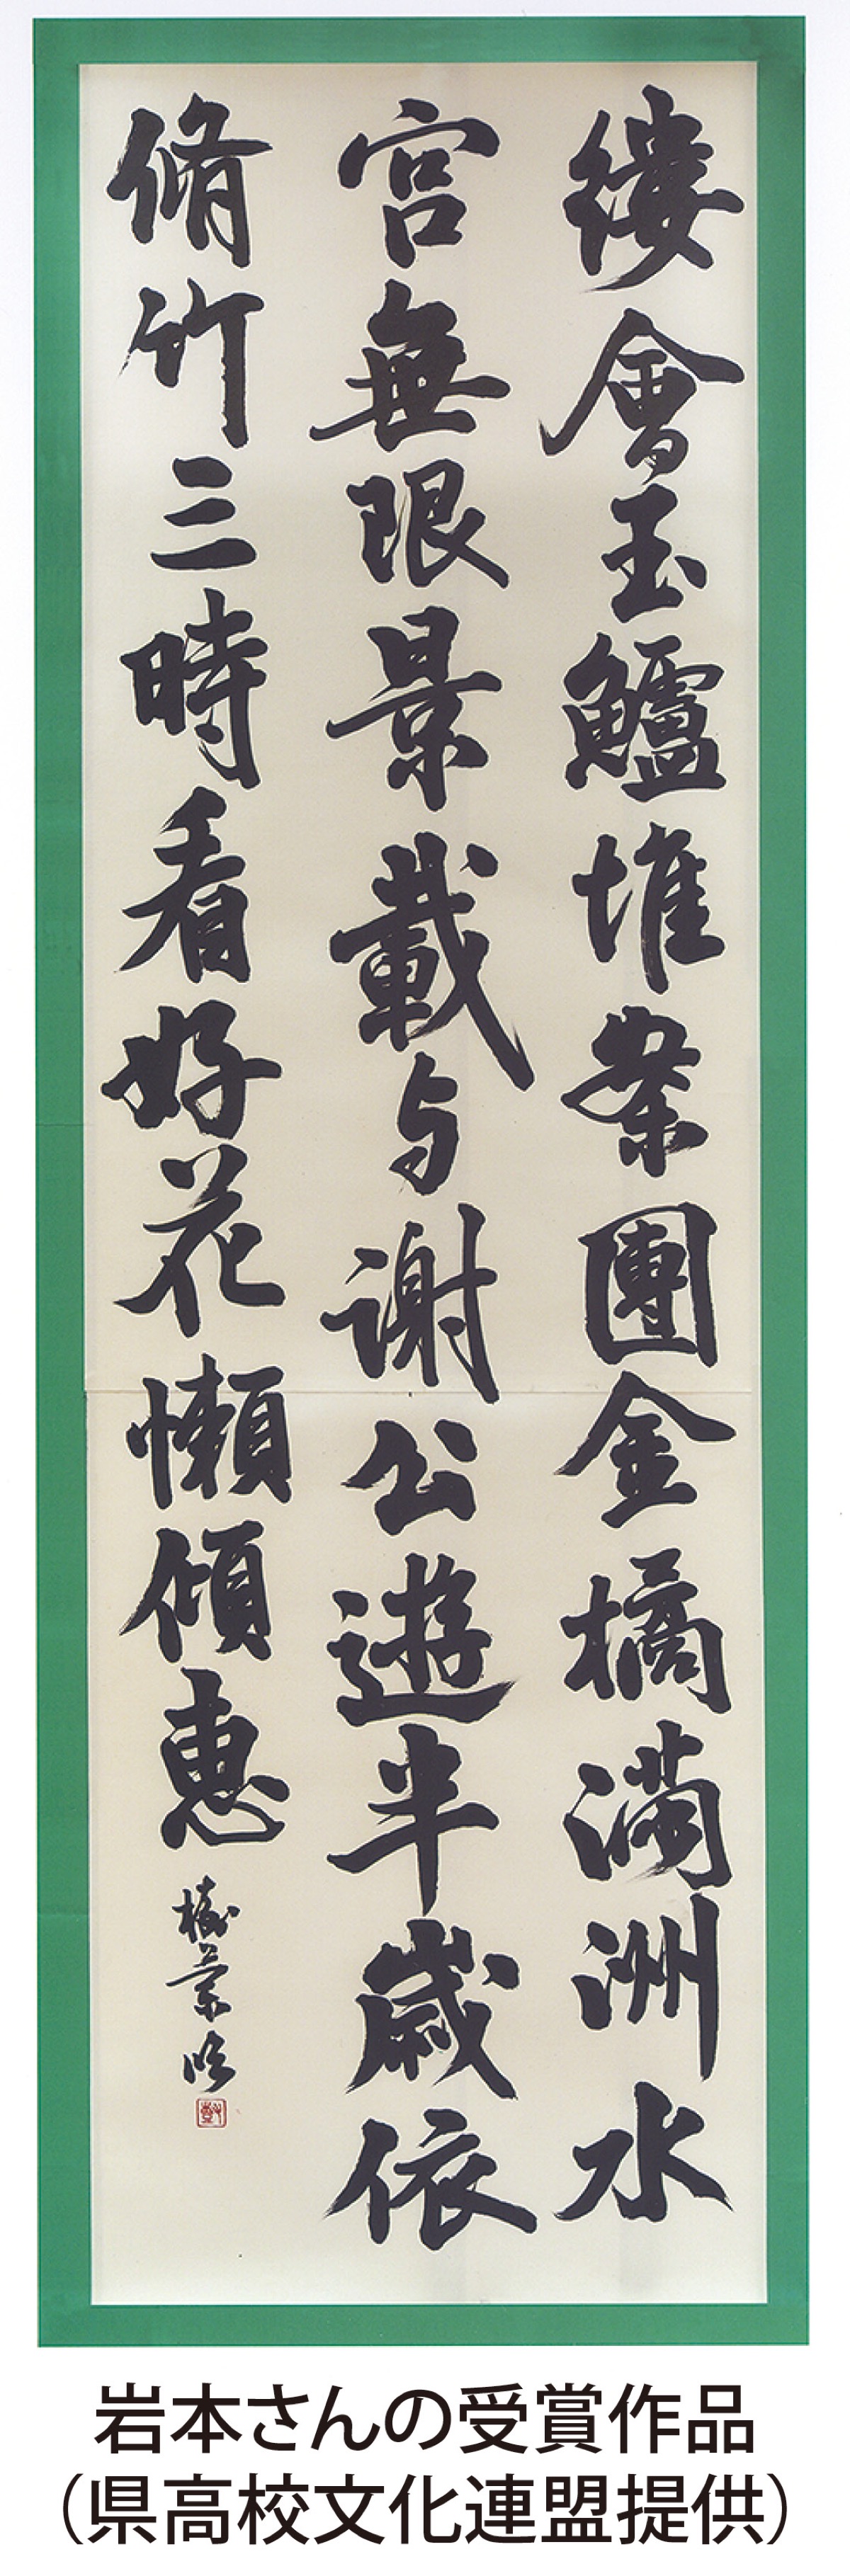 縷會玉鱸堆案團金橘満洲水
宮無限景載与謝公遊半歳依
脩竹三時看好花懶傾惠
岩本さんの受賞作品
（県高校文化連盟提供）